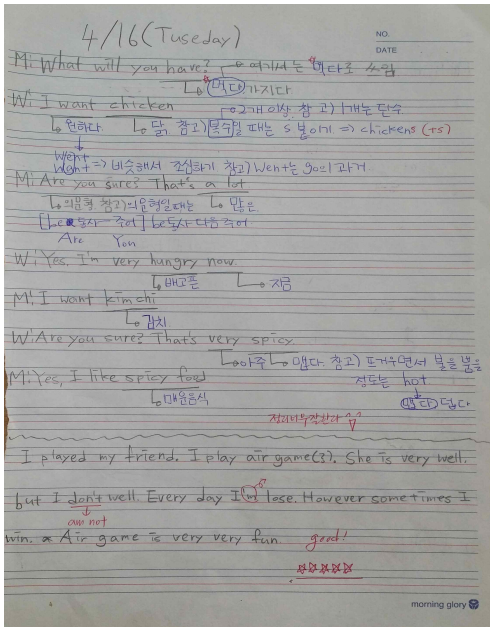 4/16(Tuseday)
NO.
DATE
M: What will you have? → 여기서는 먹다로 쓰임
↳ 먹다 가지다
W: I want chicken → 2개 이상. 참고) 1개는 단수
↳ 원하다 ↳ 닭 참고) 복수일 때는 s 붙이기 => chickens (+s)
want
went => 비슷해서 조심하기 참고) went는 go의 과거
M: Are you sure? That's a lot
↳ 의문형 참고) 의문형일때는 ↳ 많은
[be동사 - 주어] be동사 다음 주어
Are You
W: Yes. I'm very hungry now.
↳ 배고픈 ↳ 지금
M: I want kimchi
↳ 김치
W: Are you sure? That's very spicy.
↳ 아주 ↳ 맵다. 참고) 뜨거우면서 불을 뿜을
M: Yes, I like spicy food 정도는 hot
↳ 매운음식 맵다 덥다
I played my friend. I play air game(?). She is very well.
but I don't well. Every day I'm lose. However sometimes I
am not
win. Air game is very very fun. good!
☆☆☆☆☆
morning glory